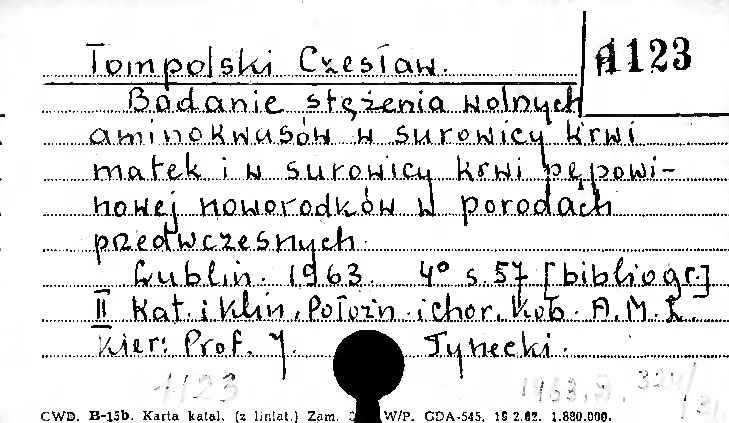 A 123
Tompolski Czesław.
Badanie stężenia wolnych
aminokwasów w surowicy krwi
matek i w surowicy krwi pępowi-
nowej noworodków w porodach
przedwczesnych.
Lublin. 1963. 4° s. 57 [bibliogr.]
II Kat. i Klin. Położn. i chor. Kob. A.M.L.
Kier: Prof. J. Tynecki.
1123
1963.S. 324/31.
CWD. B-15b. Karta katal. (z liniat.) Zam. W/P. GDA-545. 1.880.000.